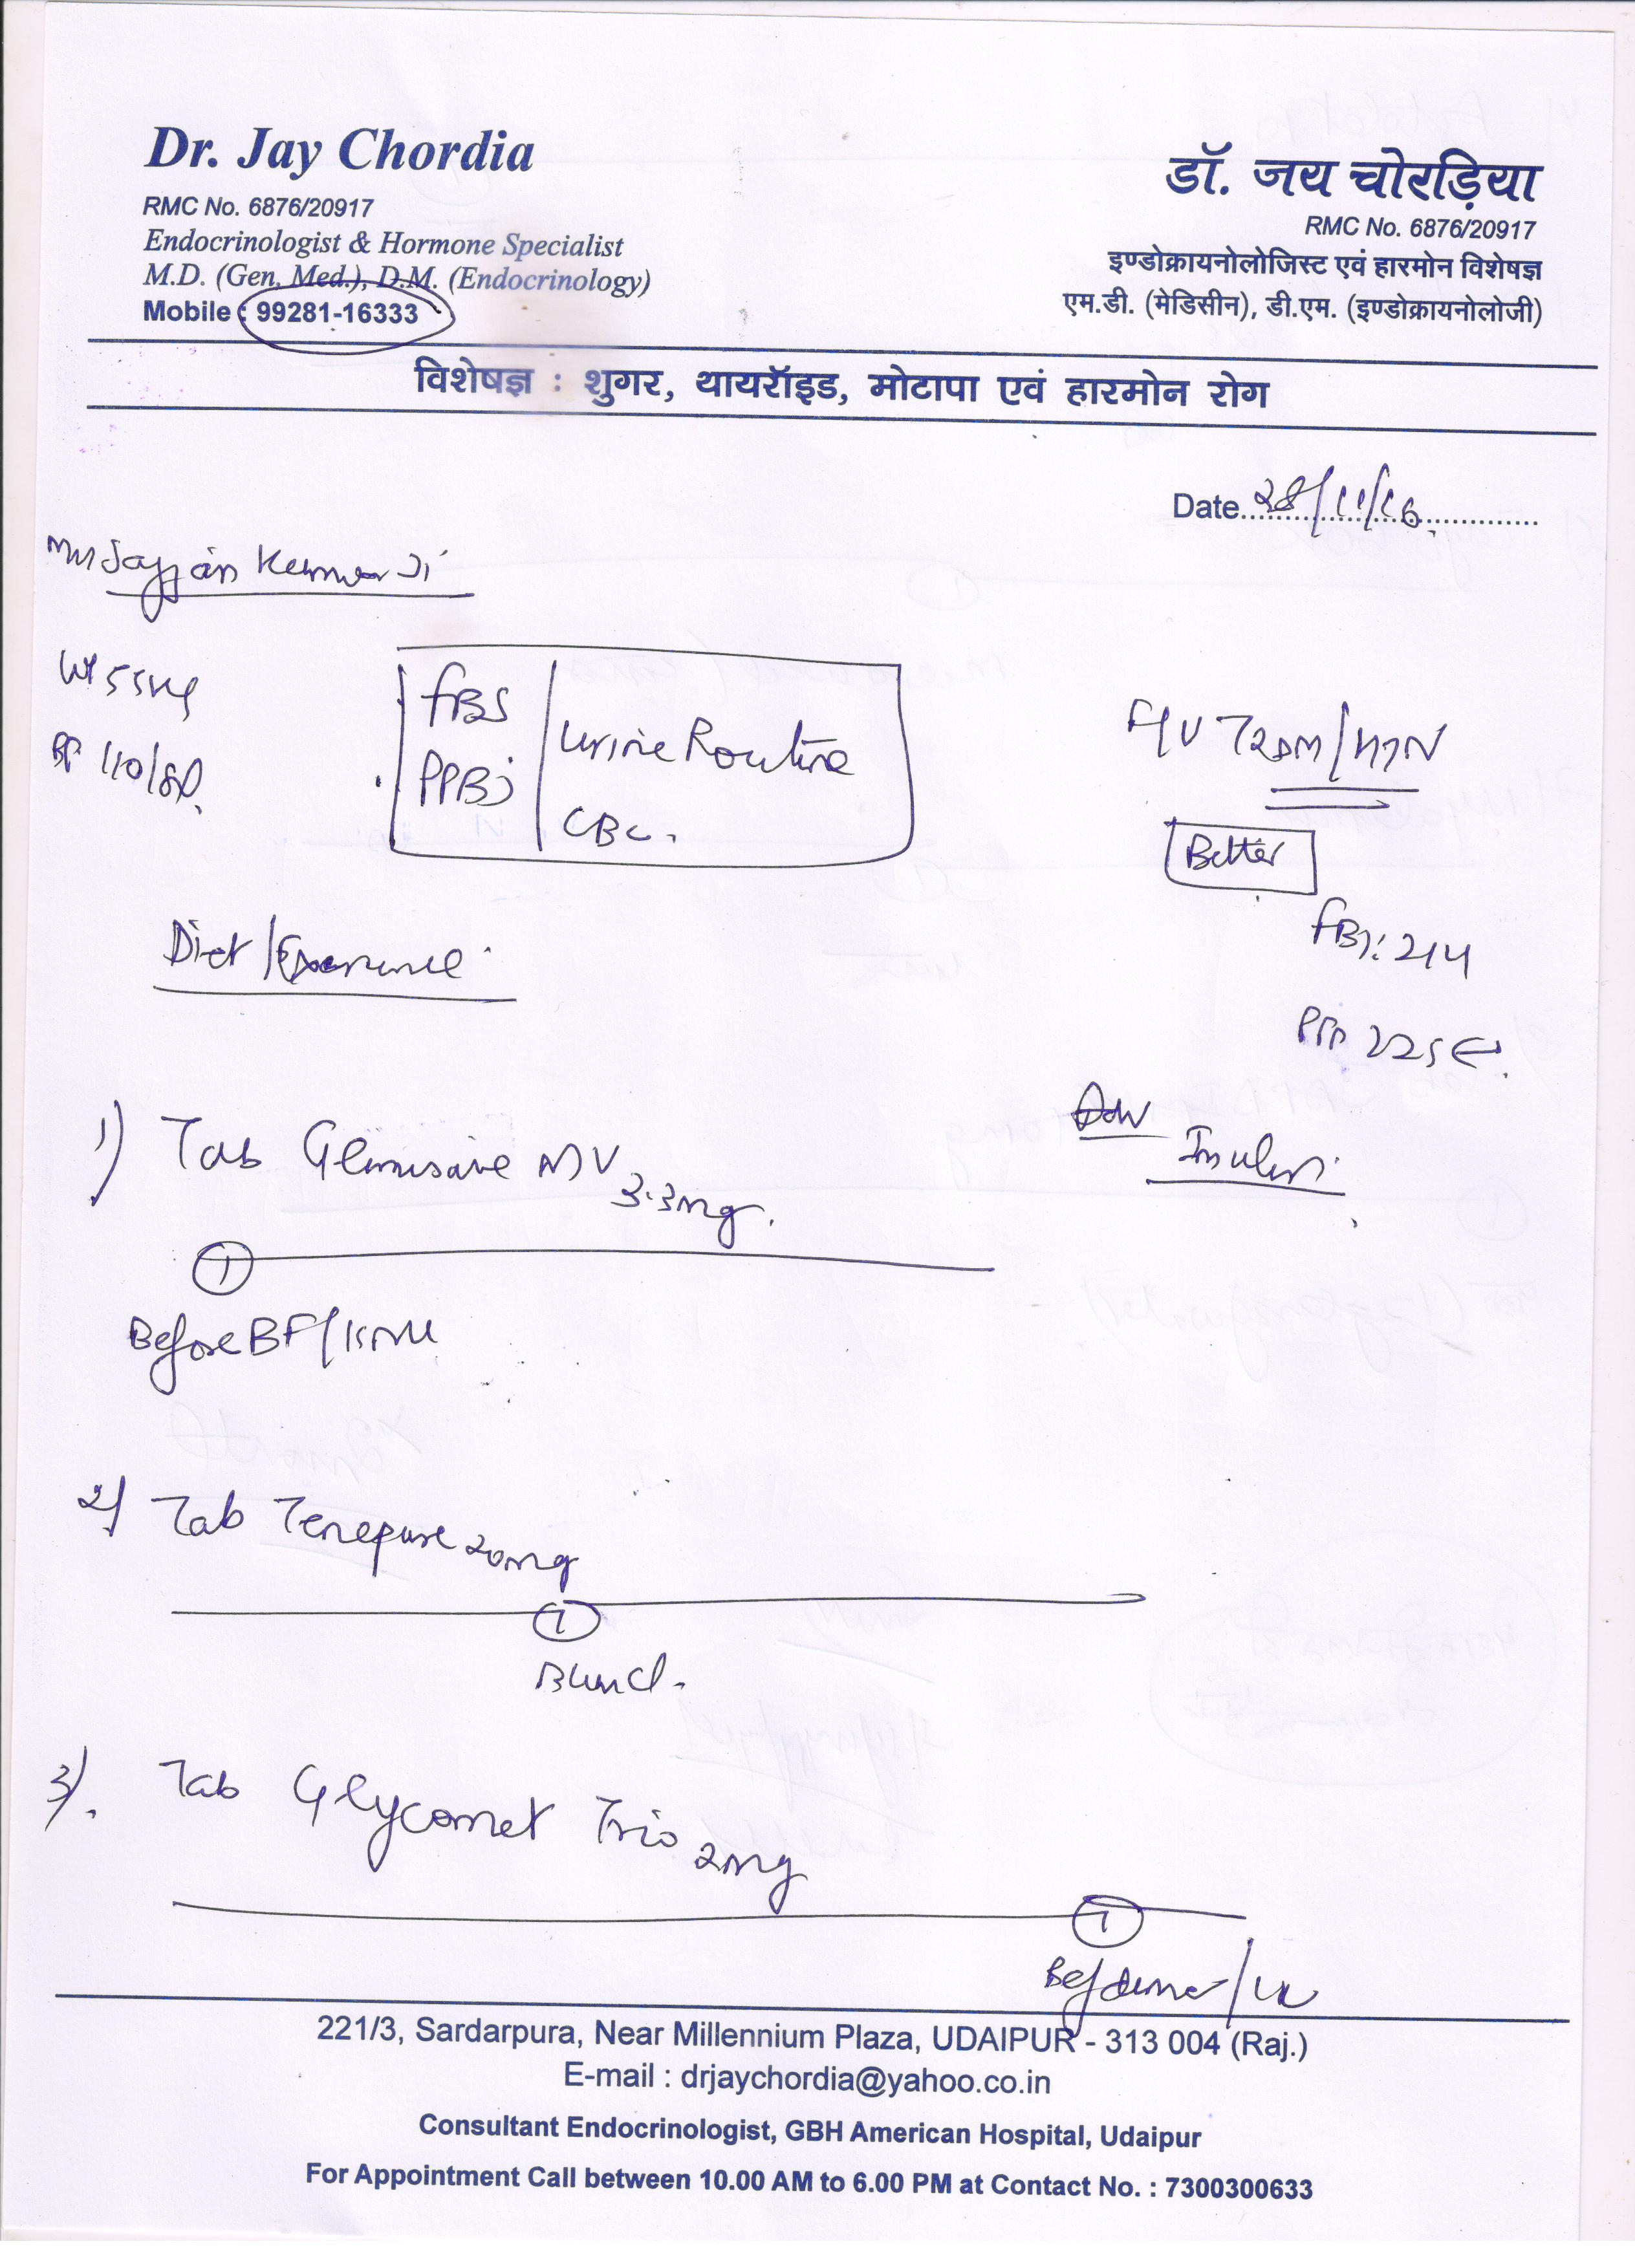 Dr. Jay Chordia
RMC No. 6876/20917
Endocrinologist & Hormone Specialist
M.D. (Gen. Med.), D.M. (Endocrinology)
Mobile : 99281-16333
डॉ. जय चोरड़िया
RMC No. 6876/20917
इण्डोक्रायनोलोजिस्ट एवं हारमोन विशेषज्ञ
एम.डी. (मेडिसीन), डी.एम. (इण्डोक्रायनोलोजी)
विशेषज्ञ : शुगर, थायरॉइड, मोटापा एवं हारमोन रोग
Date 28/11/16
Wt 55kg
BP 110/80
FBS
PPBS
Urine Routine
CBC.
F/U T2DM/HTN
Better
FBS: 214
225
Diet/
Adv
Insulin
1) Tab Glimisave MV 3.3mg.
1
Before BF/
2) Tab Tenepure 20mg
1
3). Tab Glycomet Trio 2mg
1
Bef dinner/
221/3, Sardarpura, Near Millennium Plaza, UDAIPUR - 313 004 (Raj.)
E-mail : drjaychordia@yahoo.co.in
Consultant Endocrinologist, GBH American Hospital, Udaipur
For Appointment Call between 10.00 AM to 6.00 PM at Contact No. : 7300300633